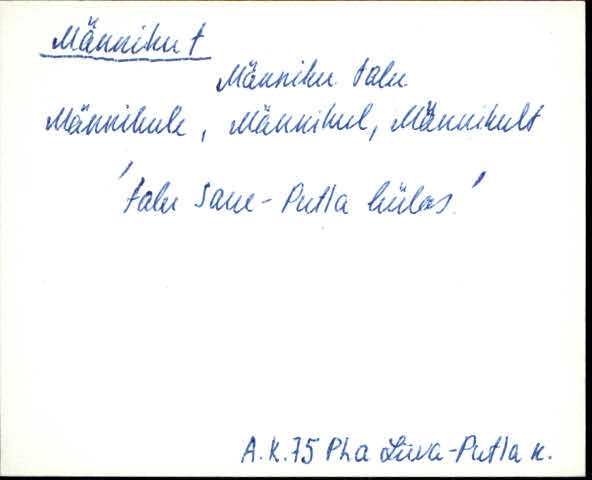 Männiku t
Männiku talu
Männikule, Männikul, Männikult
'talu Saue-Putla külas'
A.K.75 Pha Liiva-Putla k.